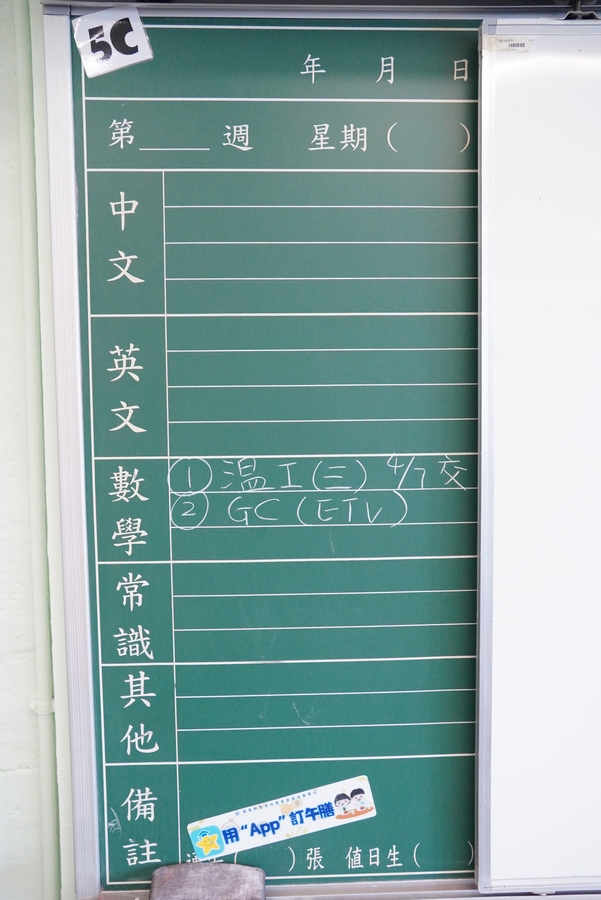 5C
年 月 日
第____週 星期( )
中文
英文
數學
① 温工(三) 4/7交
② GC (ETV)
常識
其他
備註
用"App"訂午膳
( )張 值日生( )